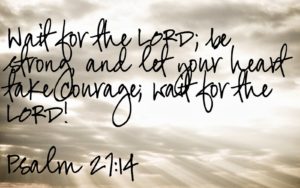 Wait for the LORD; be
strong, and let your heart
take courage; wait for the
LORD!
Psalm 27:14